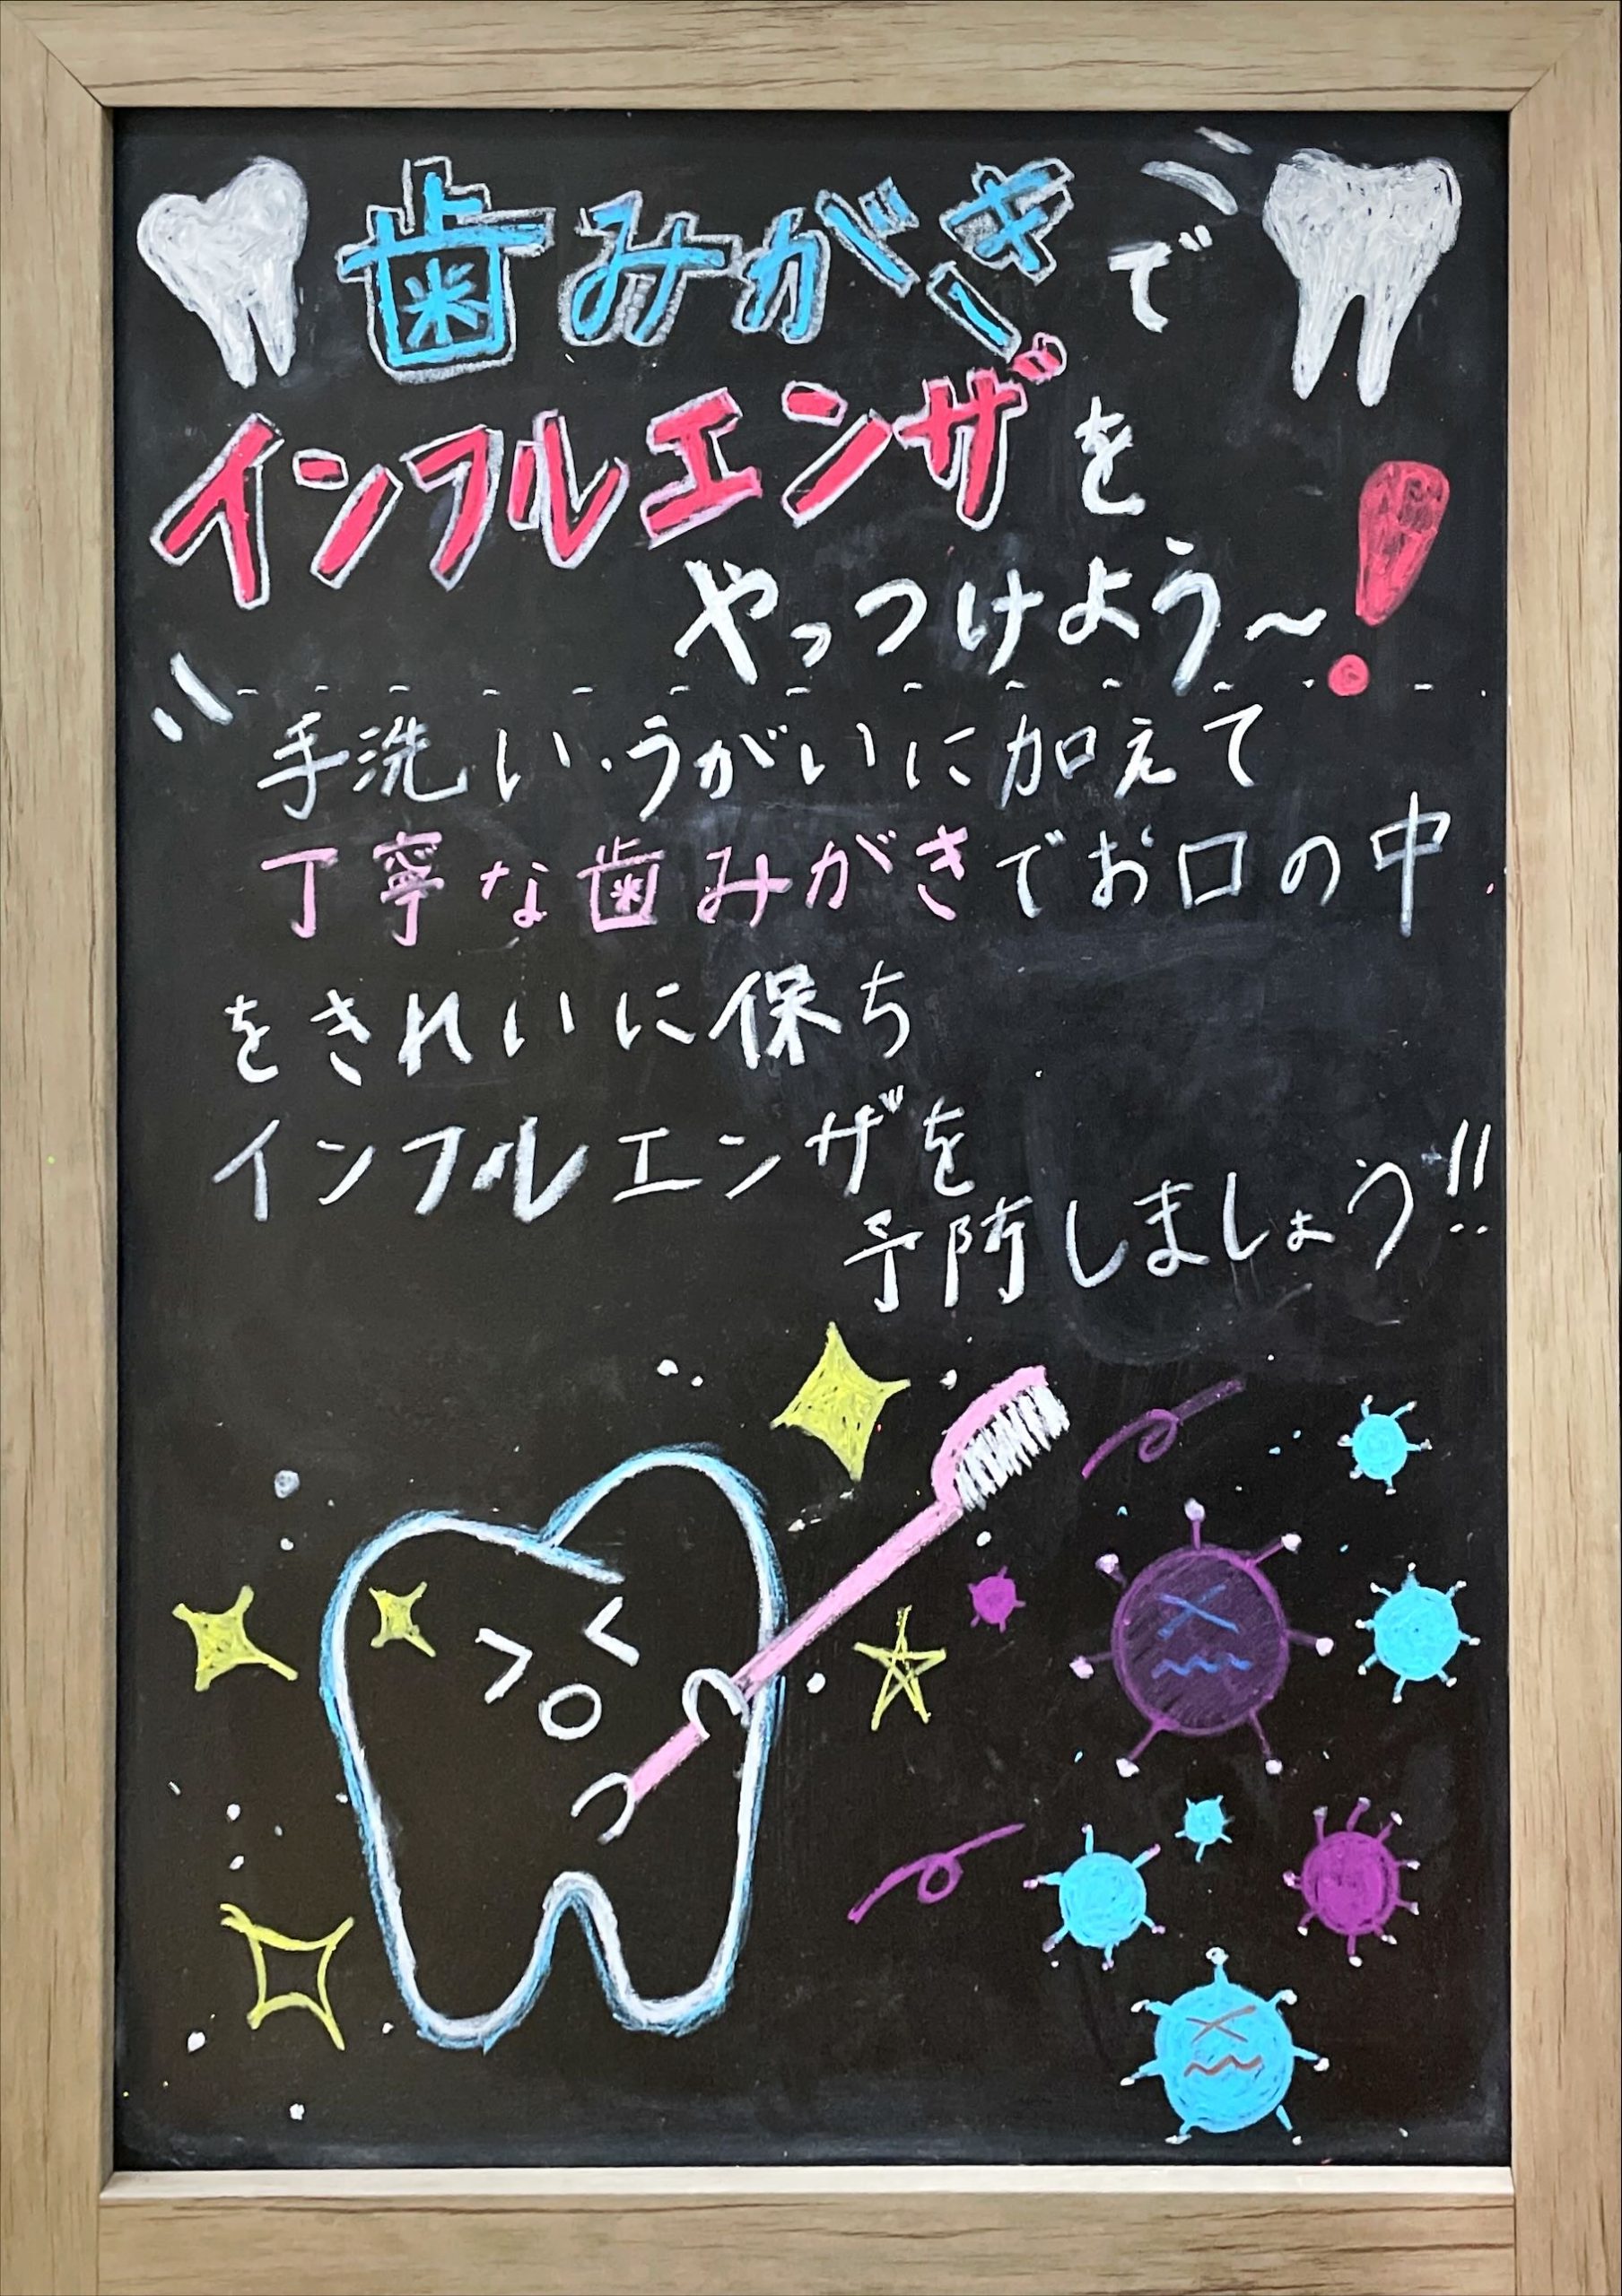 歯みがきで
インフルエンザを
やっつけよう～!
手洗い・うがいに加えて
丁寧な歯みがきでお口の中
をきれいに保ち
インフルエンザを
予防しましょう!!